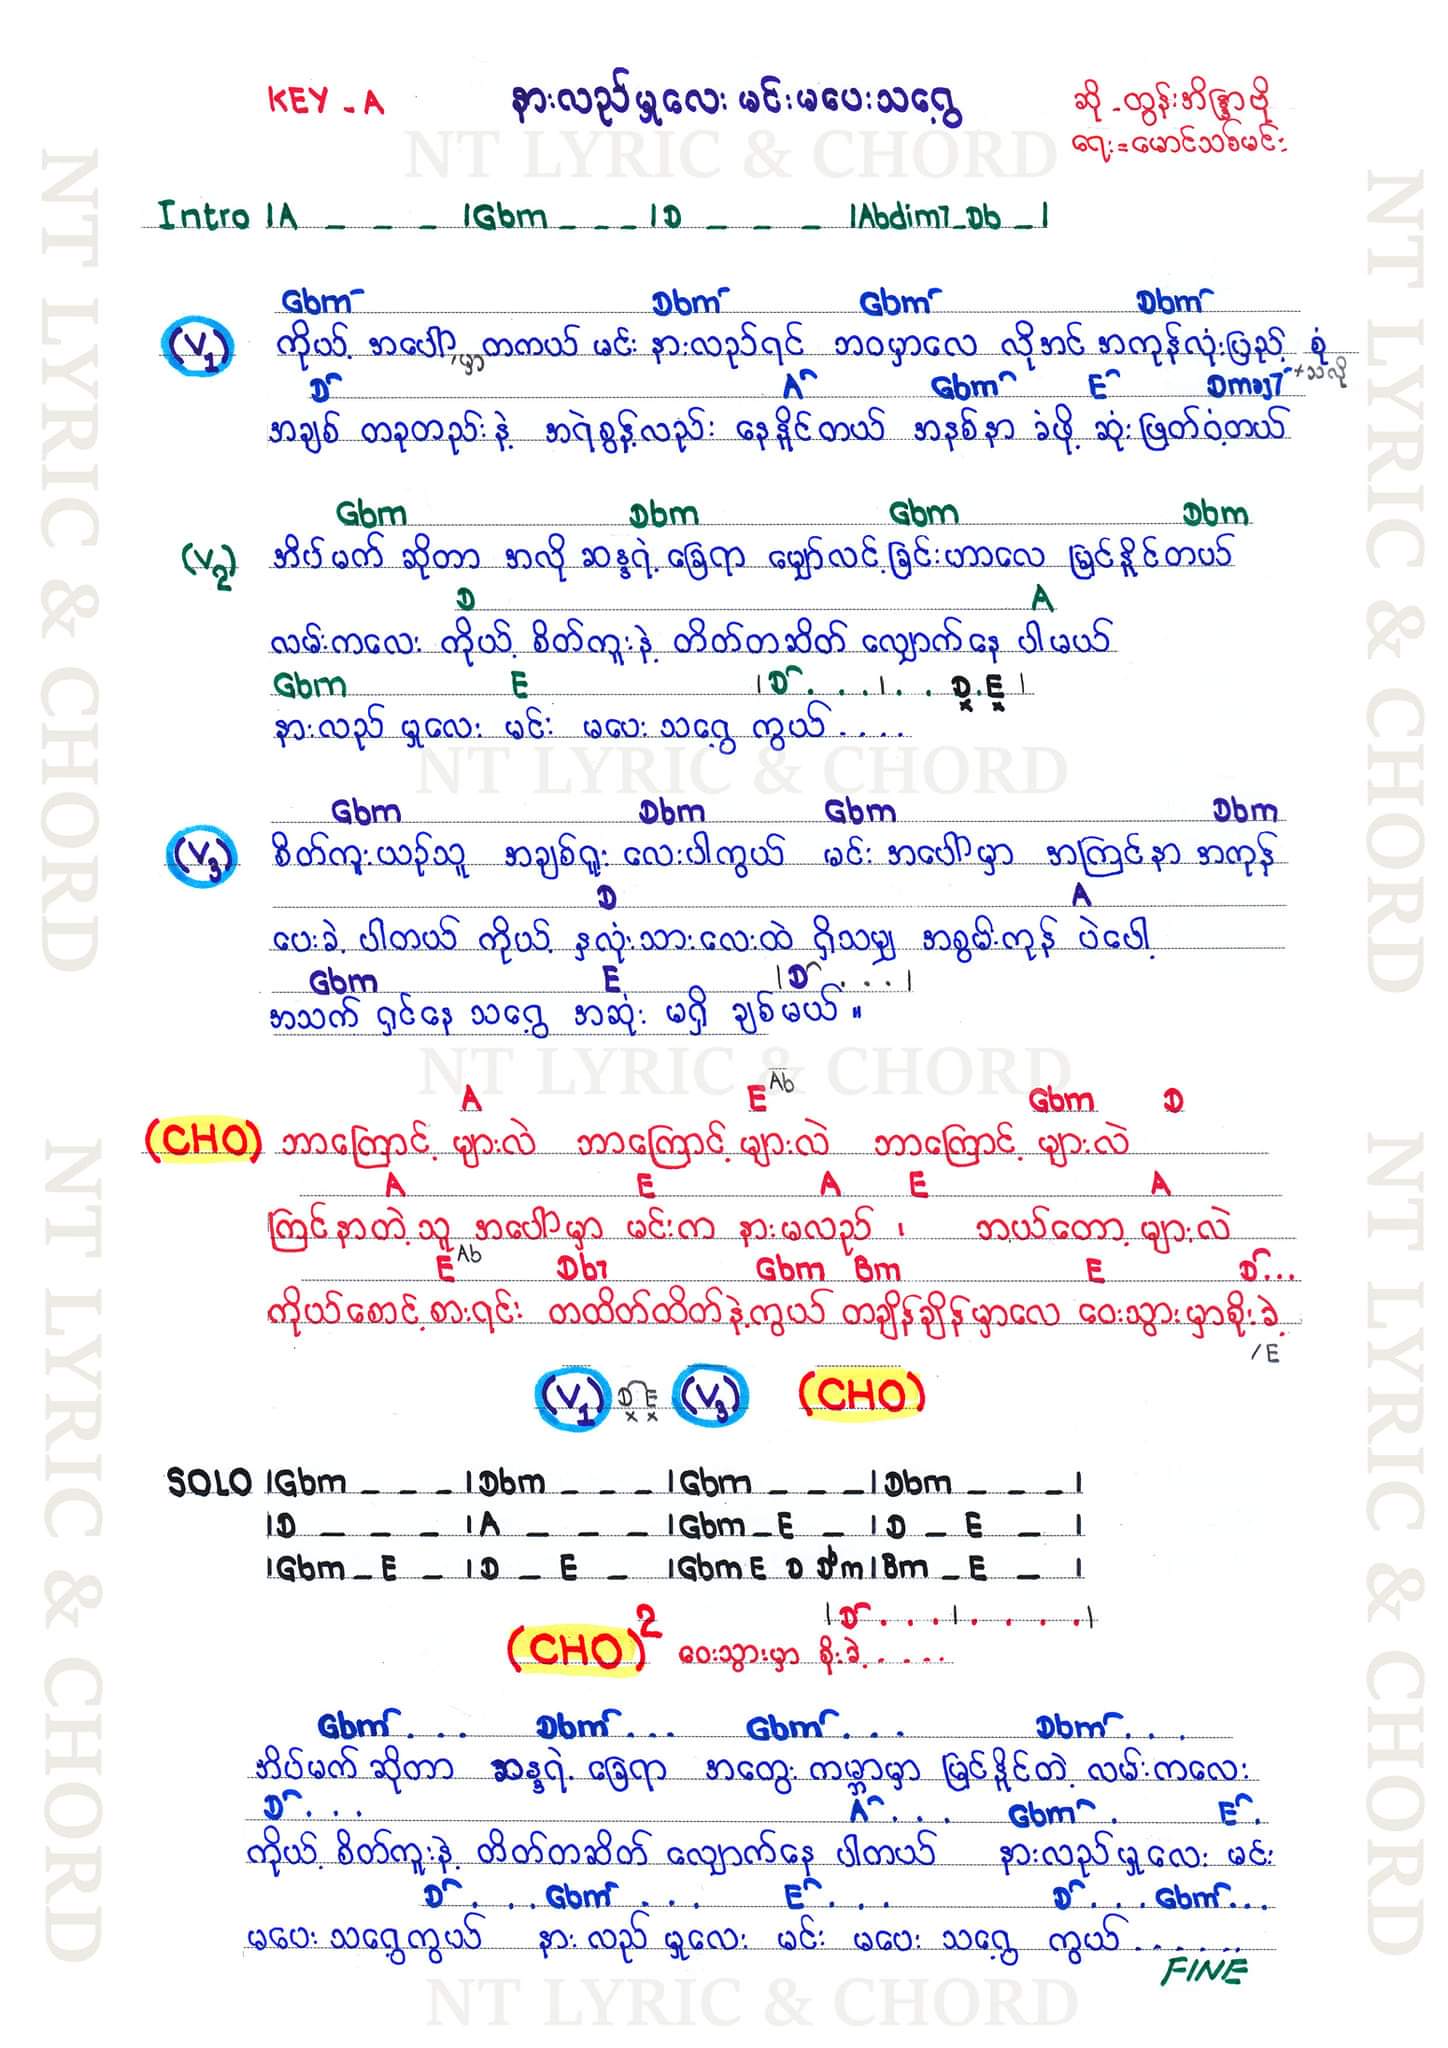 KEY - A နားလည်မှုလေး မင်းမပေးသရွေ့ ဆို - ထွန်းအိန္ဒြာဗို
ရေး = မောင်သစ်မင်း
NT LYRIC & CHORD
Intro |A _ _ _ |Gbm _ _ _ |D _ _ _ |Abdim7 _ Db _ |
Gbm Dbm Gbm Dbm
(V1) ကိုယ့် အပေါ်မှာ တကယ် မင်း နားလည်ရင် ဘဝမှာလေ လိုအင် အကုန်လုံးပြည့် စုံ
D A Gbm E Dmaj7 +သလို
အချစ် တခုတည်းနဲ့ အရဲစွန့်လည်း နေနိုင်တယ် အနစ်နာ ခံဖို့ ဆုံးဖြတ်ဝံ့တယ်
Gbm Dbm Gbm Dbm
(V2) အိပ်မက် ဆိုတာ အလို ဆန္ဒရဲ့ ခြေရာ မျှော်လင့်ခြင်းဟာလေ မြင်နိုင်တယ်
D A
လမ်းကလေး ကိုယ့် စိတ်ကူးနဲ့ တိတ်တဆိတ် လျှောက်နေ ပါမယ်
Gbm E |D . . . | . . D . E |
x x
နားလည် မှုလေး မင်း မပေး သရွေ့ ကွယ် . . . .
NT LYRIC & CHORD
Gbm Dbm Gbm Dbm
(V3) စိတ်ကူးယဉ်သူ အချစ်ရူး လေးပါကွယ် မင်း အပေါ်မှာ အကြင်နာ အကုန်
D A
ပေးခဲ့ ပါတယ် ကိုယ့် နှလုံးသားလေးထဲ ရှိသမျှ အစွမ်းကုန် ပဲပေါ့
Gbm E |D . . . |
အသက် ရှင်နေ သရွေ့ အဆုံး မရှိ ချစ်မယ် ။
NT LYRIC & CHORD
A E Ab Gbm D
(CHO) ဘာကြောင့် များလဲ ဘာကြောင့် များလဲ ဘာကြောင့် များလဲ
A E A E A
ကြင်နာတဲ့သူ အပေါ်မှာ မင်းက နားမလည် ၊ ဘယ်တော့ များလဲ
E Ab Db7 Gbm Bm E D...
ကိုယ်စောင့်စားရင်း တထိတ်ထိတ်နဲ့ကွယ် တချိန်ချိန်မှာလေ ဝေးသွားမှာစိုးခဲ့
/E
(V1) D E (V3) (CHO)
x x
SOLO |Gbm _ _ _ |Dbm _ _ _ |Gbm _ _ _ |Dbm _ _ _ |
|D _ _ _ |A _ _ _ |Gbm _ E _ |D _ E _ |
|Gbm _ E _ |D _ E _ |Gbm E D Dbm |Bm _ E _ |
|D . . . | . . . . |
(CHO)2 ဝေးသွားမှာ စိုးခဲ့ . . . . .
Gbm . . . Dbm . . . Gbm . . . Dbm . . .
အိပ်မက် ဆိုတာ ဆန္ဒရဲ့ ခြေရာ အတွေး ကမ္ဘာမှာ မြင်နိုင်တဲ့ လမ်းကလေး
D . . . A . . . Gbm . E .
ကိုယ့် စိတ်ကူးနဲ့ တိတ်တဆိတ် လျှောက်နေ ပါတယ် နားလည်မှုလေး မင်း
D . . . Gbm . . . E . . . D . . . Gbm . . .
မပေး သရွေ့ကွယ် နားလည် မှုလေး မင်း မပေး သရွေ့ ကွယ် . . . . . .
FINE
NT LYRIC & CHORD
NT LYRIC & CHORD
NT LYRIC & CHORD
NT LYRIC & CHORD
NT LYRIC & CHORD